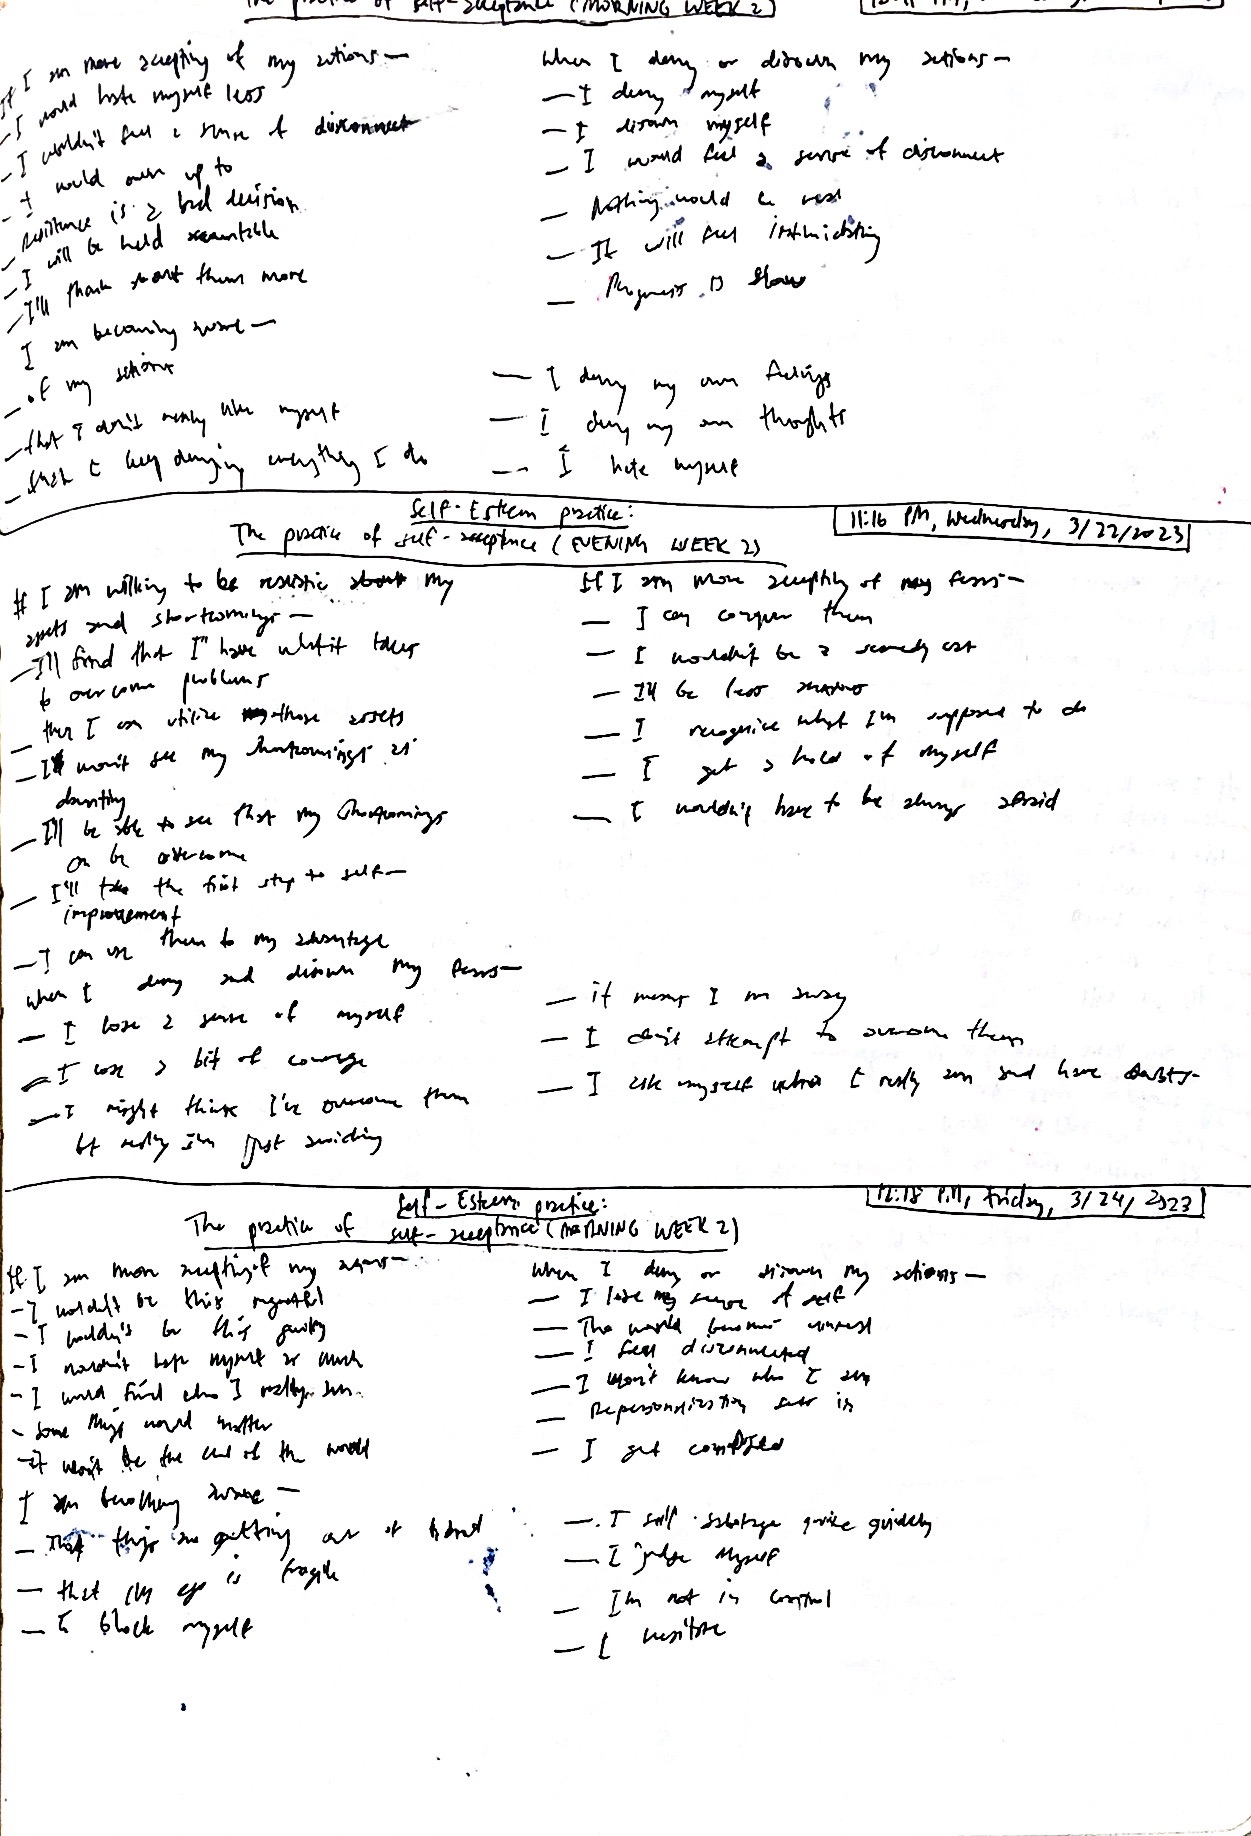 The practice of self-acceptance (MORNING WEEK 2)
If I am more accepting of my actions—
- I would hate myself less
- I wouldn't feel a sense of disconnect
- I would own up to
- Resistance is a bad decision
- I will be held accountable
- I'll think about them more
I am becoming aware—
- of my actions
- that I don't really like myself
- that I keep denying everything I do
When I deny or disown my actions—
- I deny myself
- I disown myself
- I would feel a sense of disconnect
- Nothing would be real
- It will feel intimidating
- Progress is slow
- I deny my own feelings
- I deny my own thoughts
- I hate myself
Self-Esteem practice:
11:16 PM, Wednesday, 3/22/2023
The practice of self-acceptance (EVENING WEEK 2)
If I am willing to be realistic about my
assets and shortcomings—
- I'll find that I have what it takes
to overcome problems
- then I can utilize those assets
- I won't see my shortcomings as
daunting
- I'll be able to see that my shortcomings
can be overcome
- I'll take the first step to self-
improvement
- I can use them to my advantage
If I am more accepting of my fears—
- I can conquer them
- I wouldn't be a scaredy cat
- I'll be less anxious
- I recognize what I'm supposed to do
- I get a hold of myself
- I wouldn't have to be always afraid
When I deny and disown my fears—
- I lose a sense of myself
- I lose a bit of courage
- I might think I've overcome them
but really I'm just avoiding
- it means I run away
- I don't attempt to overcome them
- I ask myself who I really am and have doubts
Self-Esteem practice:
12:18 PM, Friday, 3/24/2023
The practice of self-acceptance (MORNING WEEK 2)
If I am more accepting of my actions—
- I wouldn't be this regretful
- I wouldn't be this guilty
- I wouldn't hate myself as much
- I would find who I really am
- Some things would matter
- It won't be the end of the world
I am becoming aware—
- That things are getting out of hand
- that my ego is fragile
- I block myself
When I deny or disown my actions—
- I lose my sense of self
- The world becomes unreal
- I feel disconnected
- I won't know who I am
- Depersonalization sets in
- I get confused
- I self-sabotage quite quickly
- I judge myself
- I'm not in control
- I hesitate